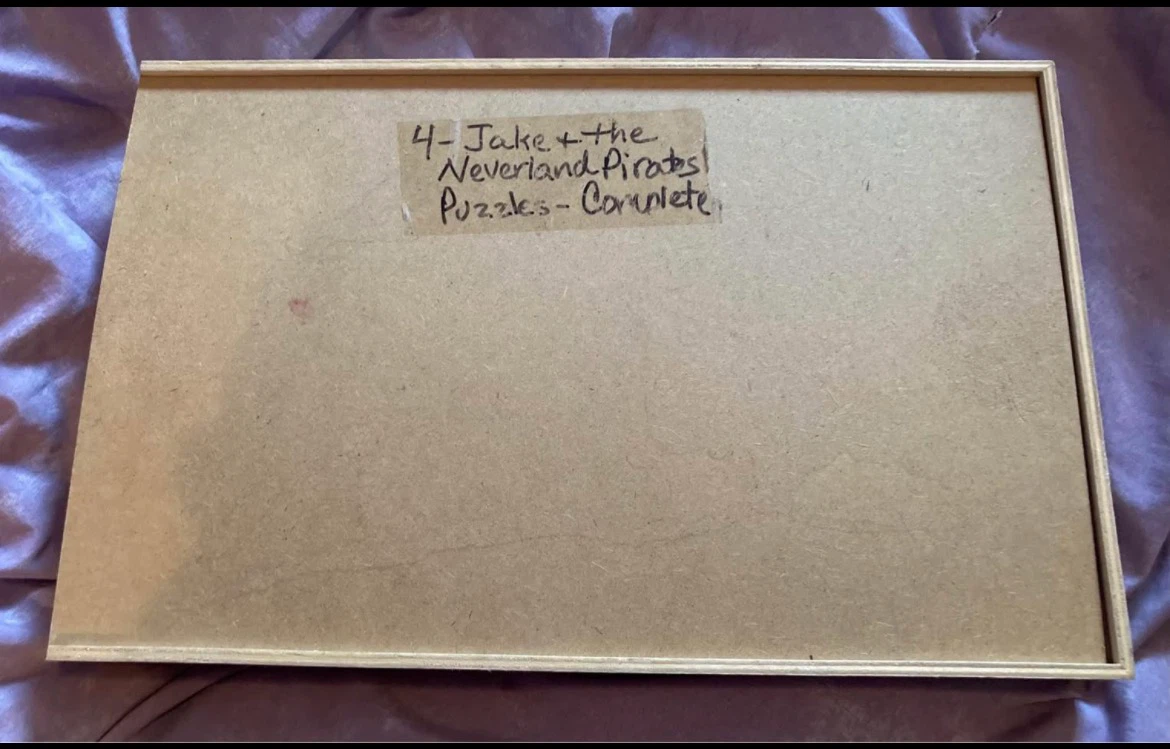 4- Jake + the
Neverland Pirates
Puzzles - Complete